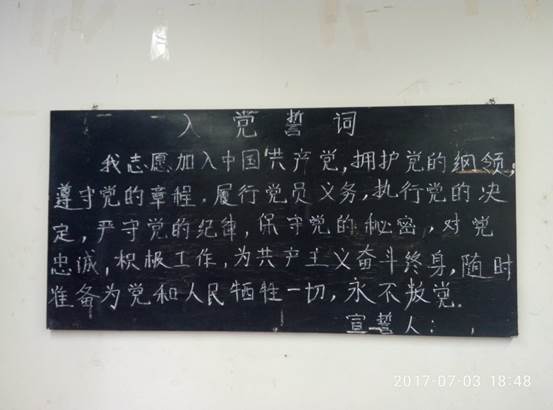 入党誓词
我志愿加入中国共产党,拥护党的纲领,
遵守党的章程,履行党员义务,执行党的决
定,严守党的纪律,保守党的秘密,对党
忠诚,积极工作,为共产主义奋斗终身,随时
准备为党和人民牺牲一切,永不叛党.
宣誓人:
2017-07-03 18:48